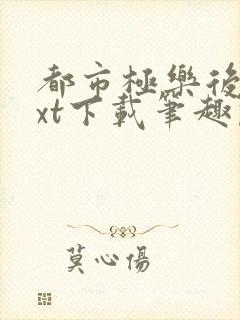 都市極樂後
xt下載筆趣
莫心傷